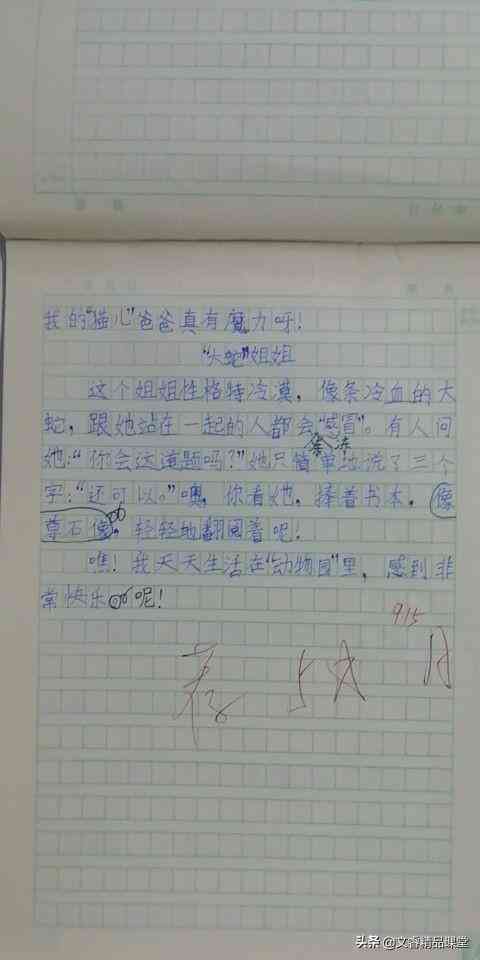 我的“猫儿”爸爸真有魔力呀！
“大蛇”姐姐
这个姐姐性格特冷漠，像条冷血的大
蛇，跟她站在一起的人都会“感冒”。有人问
她：“你会这道题吗？”她只简单地说了三个
字：“还可以。”噢，你看她，捧着书本，像
尊石像，轻轻地翻阅着呢！
瞧！我天天生活在“动物园”里，感到非
常快乐呢！
915
月
头条 @文睿精品课堂